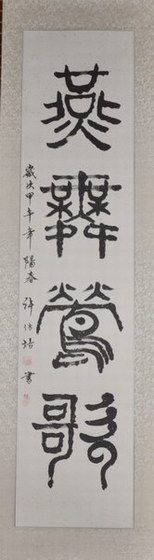 燕舞鶯歌
歲次甲午年陽春許作楊書